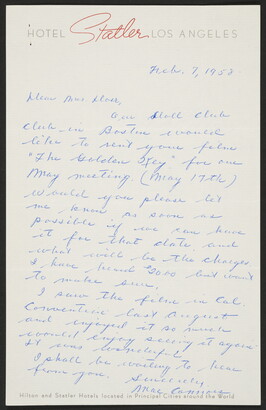 HOTEL Statler LOS ANGELES
Feb. 7, 1958
Dear Mrs.
Our Doll Club
Club in Boston would
like to rent your film
"The Golden Key" for our
May meeting (May 17th)
Would you please let
me know as soon as
possible if we can have
it for that date and
what will be the charges
I have heard but want
to make sure.
I saw the film in Cal.
Convention last August
and enjoyed it so much
would enjoy seeing it again
It was wonderful
I shall be waiting to hear
from you. Sincerely
Mrs.
Hilton and Statler Hotels located in Principal Cities around the World